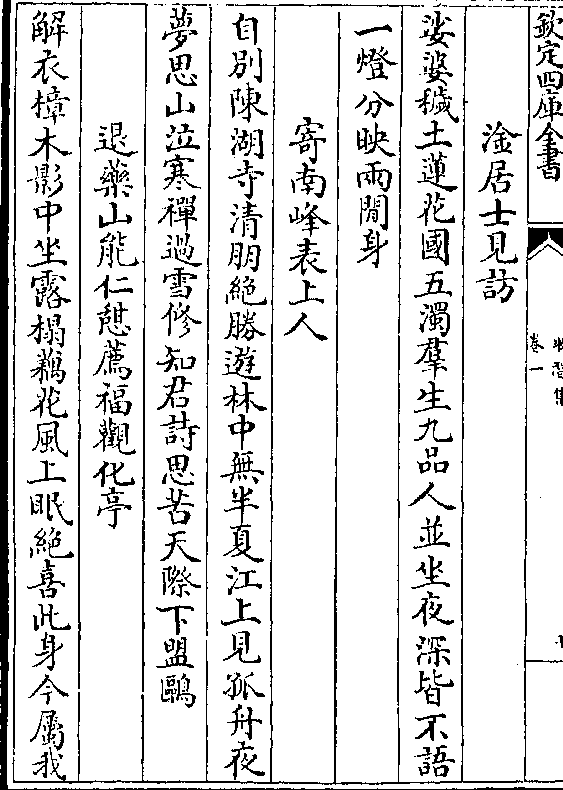 欽定四庫全書
卷一
淦居士見訪
娑婆穢土蓮花國五濁羣生九品人並坐夜深皆不語
一燈分映兩閒身
寄南峰表上人
自別陳湖寺清朋絶勝遊林中無半夏江上見孤舟夜
夢思山泣寒禪過雪修知君詩思苦天際下盟鷗
退藥山能仁憇薦福觀化亭
解衣樟木影中坐露榻藕花風上眠絶喜此身今屬我